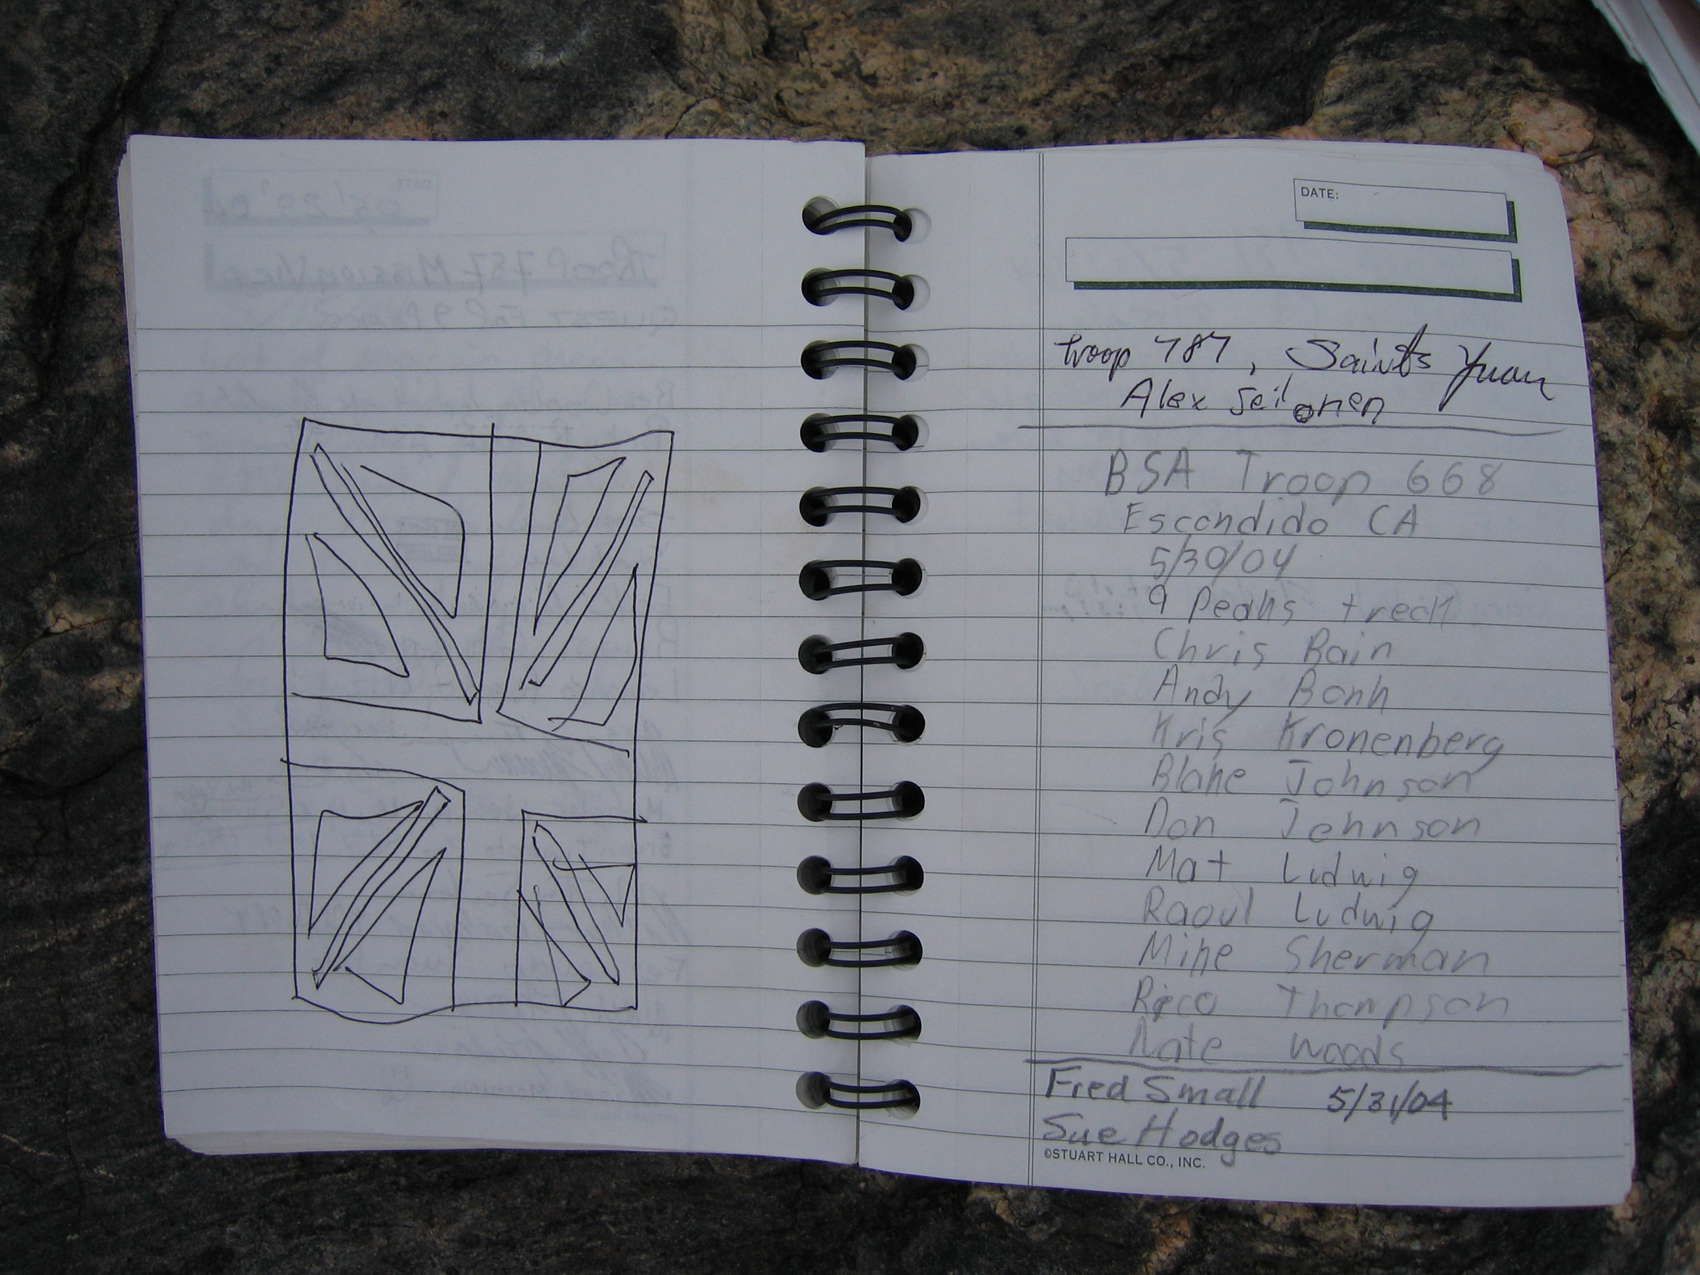 DATE:
Troop 787, Saints Yuan
Alex
BSA Troop 668
Escondido CA
5/30/04
9 Peaks treck
Chris Bain
Andy Bonh
Kris Kronenberg
Blake Johnson
Don Johnson
Mat Ludwig
Raoul Ludwig
Mike Sherman
Rico Thompson
Nate Woods
Fred Small 5/31/04
Sue Hodges
©STUART HALL CO., INC.